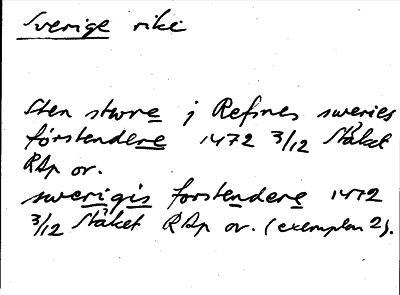 Sverige rike
Sten sture j Refsnes sweries
förstendere 1472 3/12 Stäket
RAp or.
swerigis forstendere 1472
3/12 Stäket RAp or. (exemplar 2).